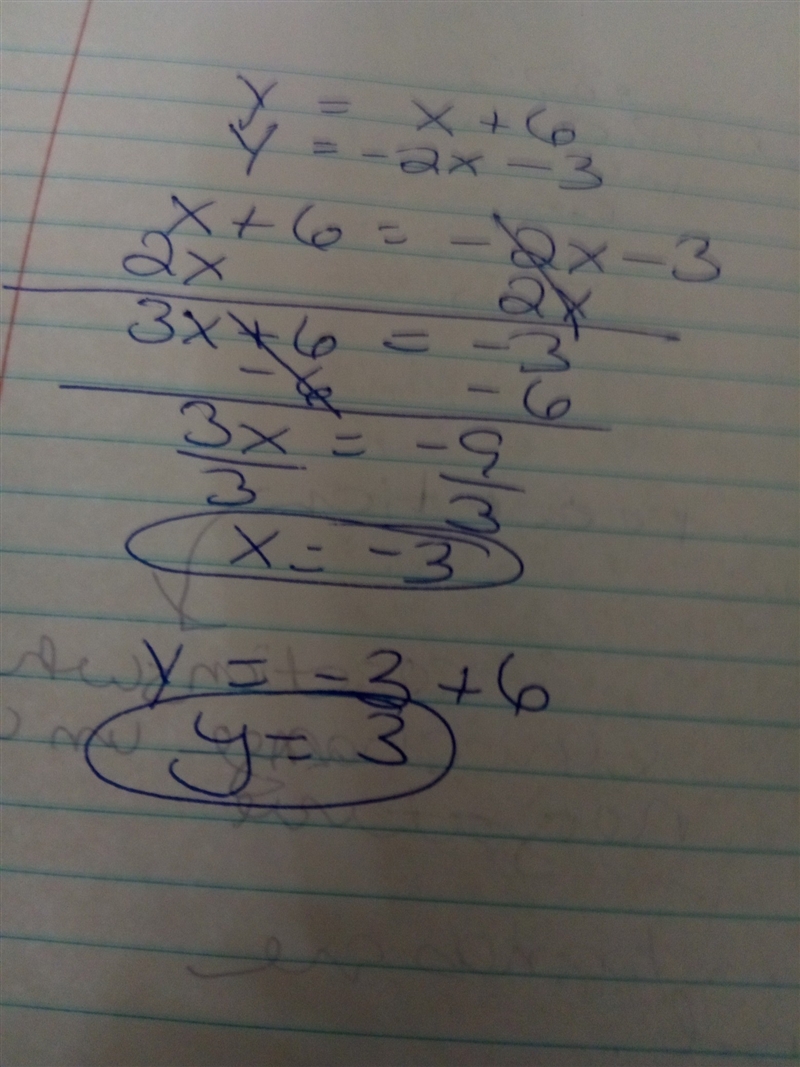 y = x + 6
y = -2x - 3
x + 6 = -2x - 3
2x 2x
3x + 6 = -3
-6 -6
3x = -9
3 3
x = -3
y = -3 + 6
y = 3